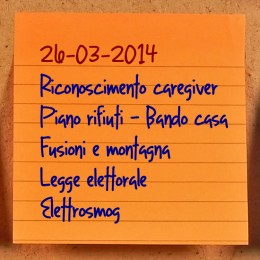 26-03-2014
Riconoscimento caregiver
Piano rifiuti - Bando casa
Fusioni e montagna
Legge elettorale
Elettrosmog